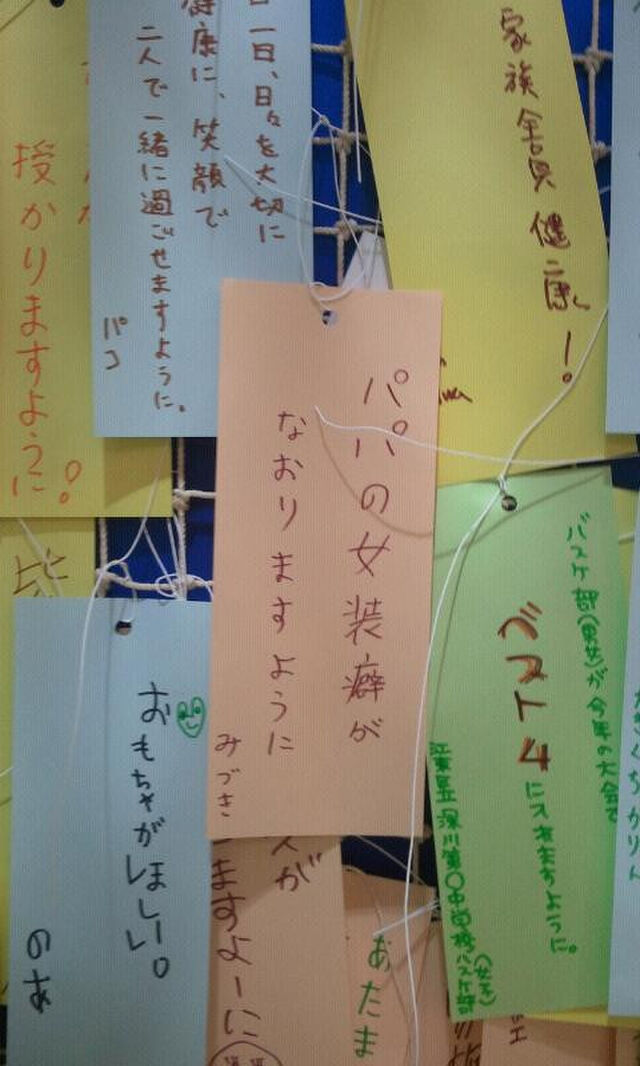 家族全員健康！
一日、日々を大切に
健康に、笑顔で
二人で一緒に過ごせますように。
パコ
授かりますように！
パパの女装癖が
なおりますように
みづき
バスケ部(男女)が今年の大会で
ベスト4
に入れますように。
江東区立深川第〇中学校バスケ部
(女子)
おもちゃがほしい。
のあ
スが
ますよーに
あたま